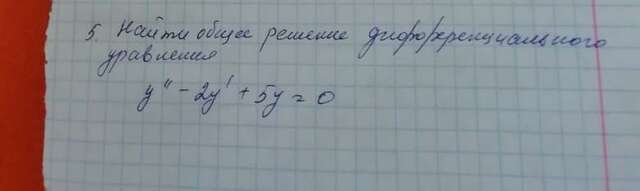 5. Найти общее решение дифференциального
уравнения
y'' - 2y' + 5y = 0